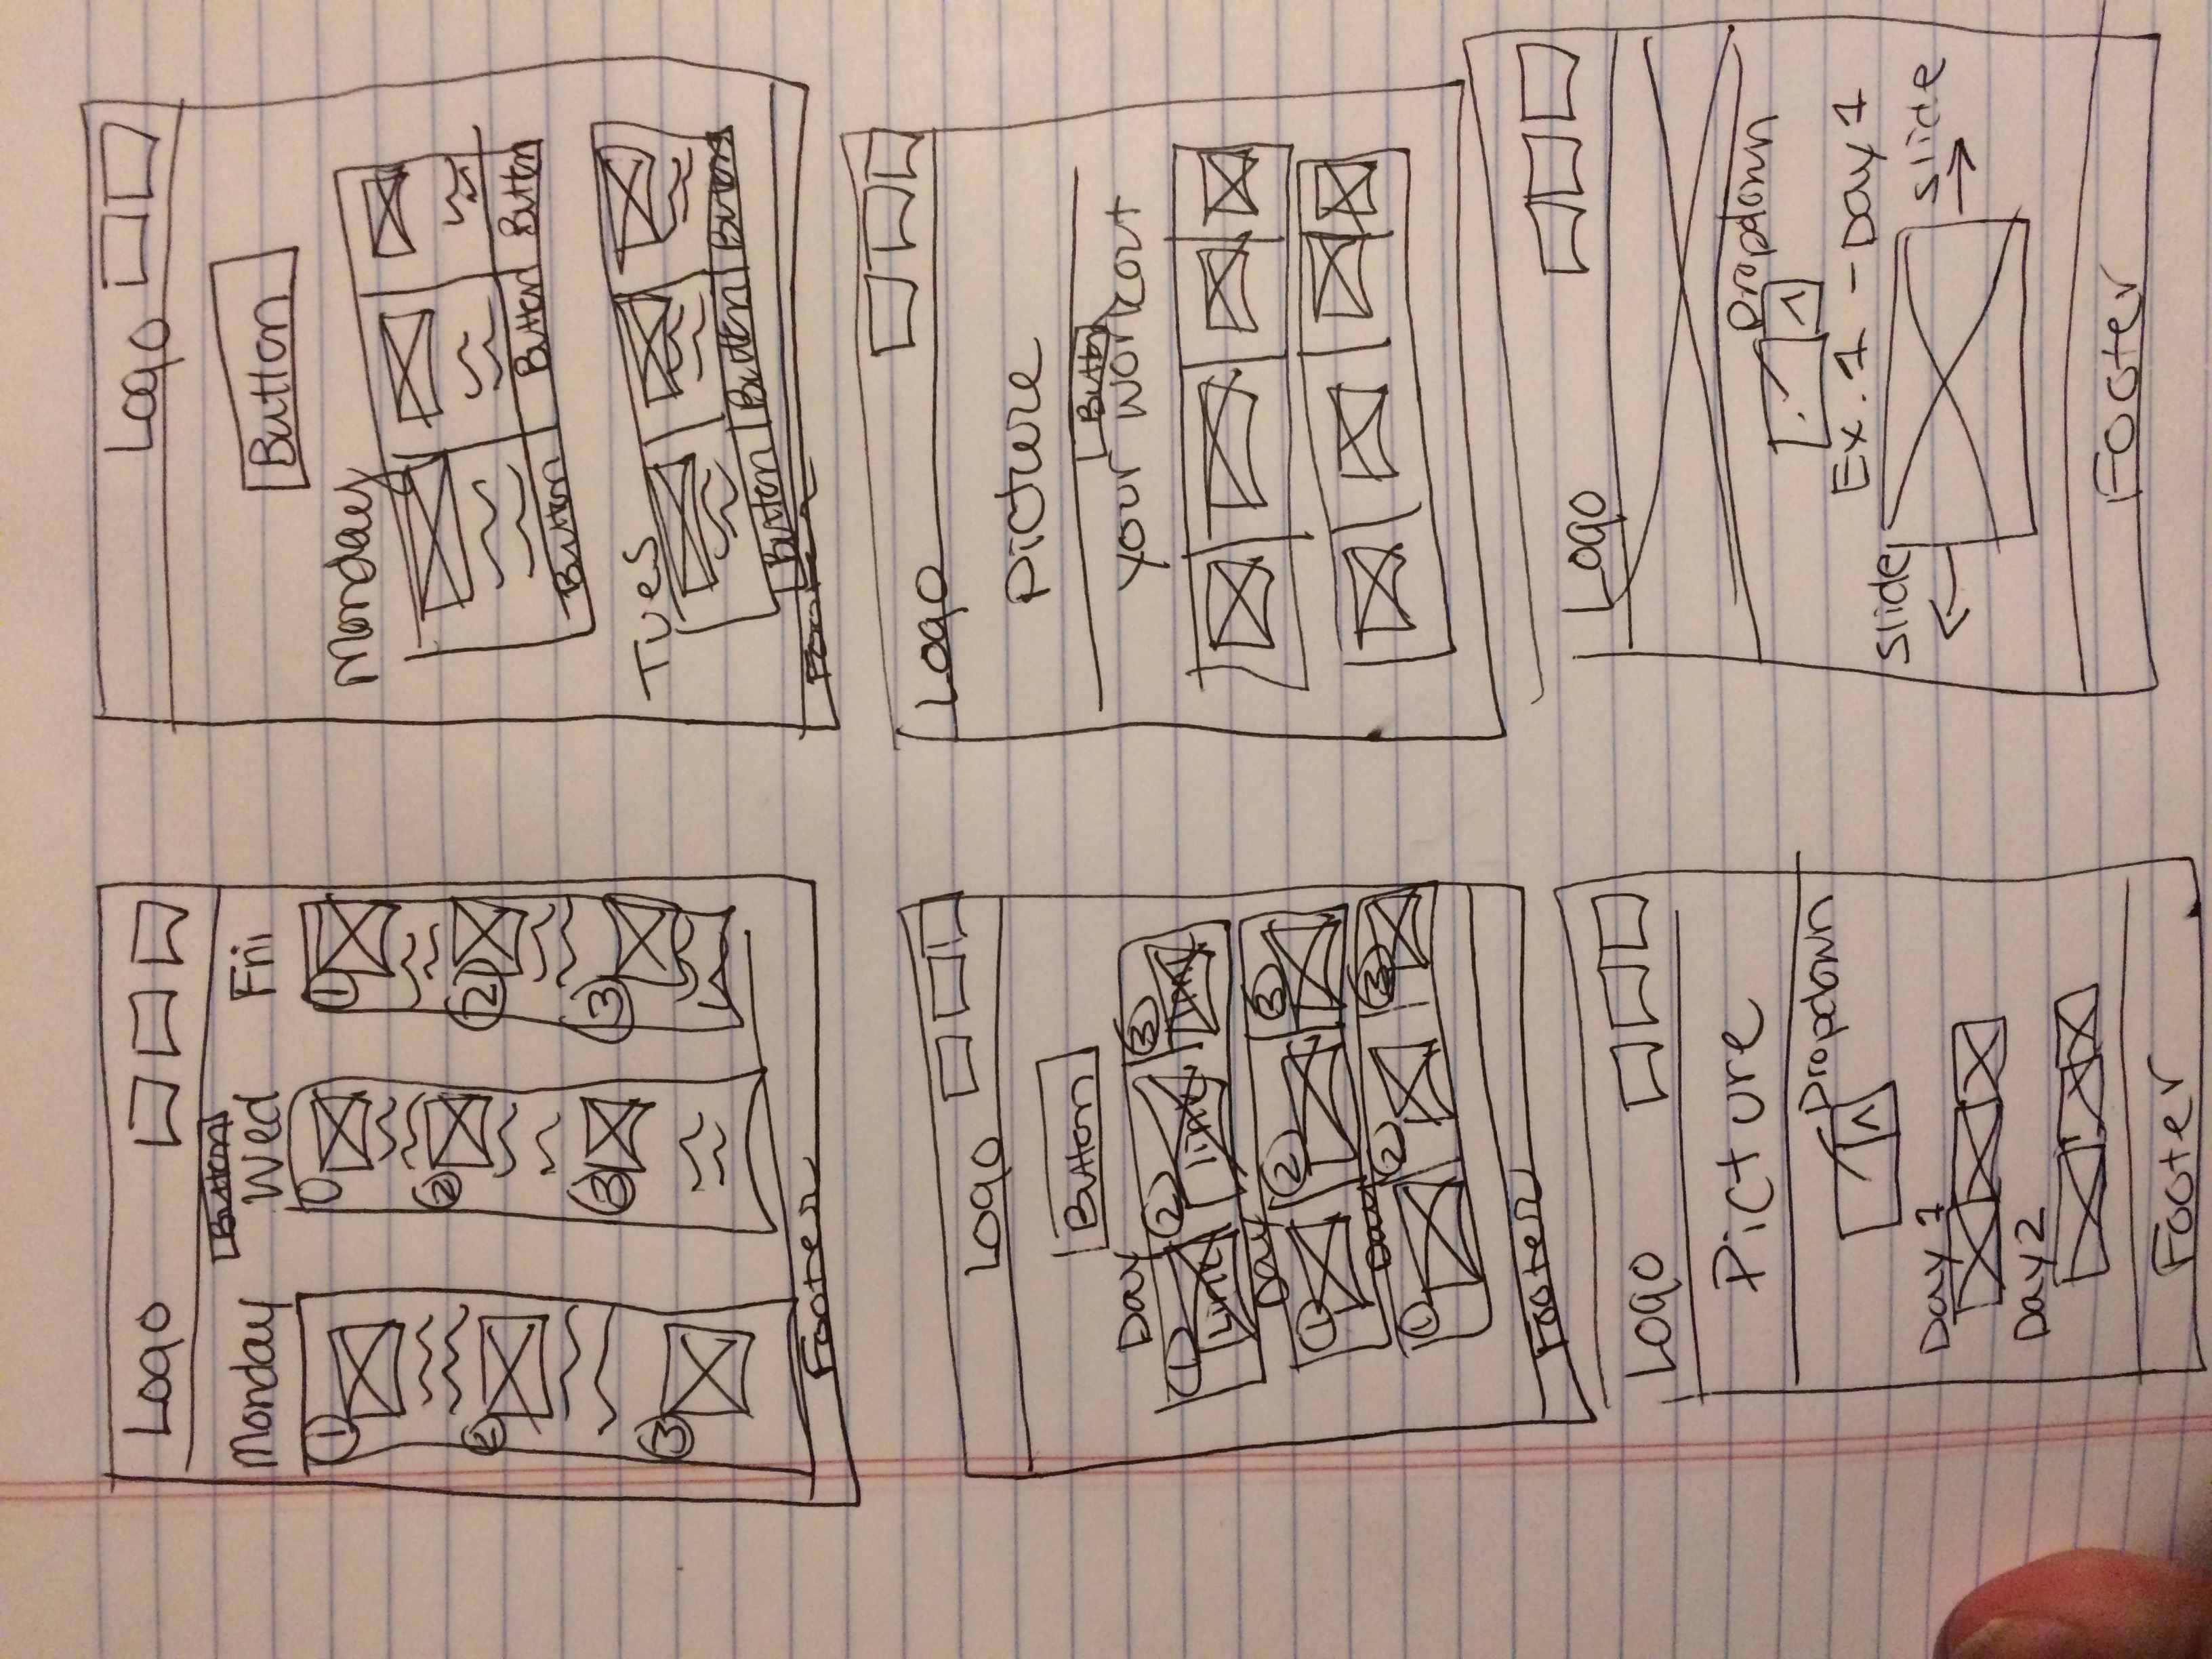 Logo
Button
Monday Wed Fri
1 1
2 2 2
3 3 3
Footer
Logo
Button
Monday
Button Button Button
Tues
Button Button Button
Footer
Logo
Button
Day
1 2 3
Link link link
Day
1 2 3
Day
1 2 3
Footer
Logo
Picture
Button
your workout
Logo
Picture
Dropdown
Day 1
Day 2
Footer
Logo
Dropdown
Ex. 1 - Day 1
slide slide
Footer